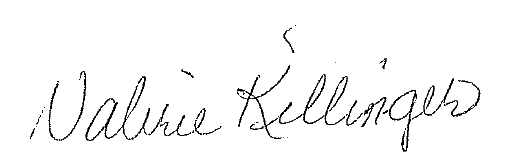 Valerie Killinger